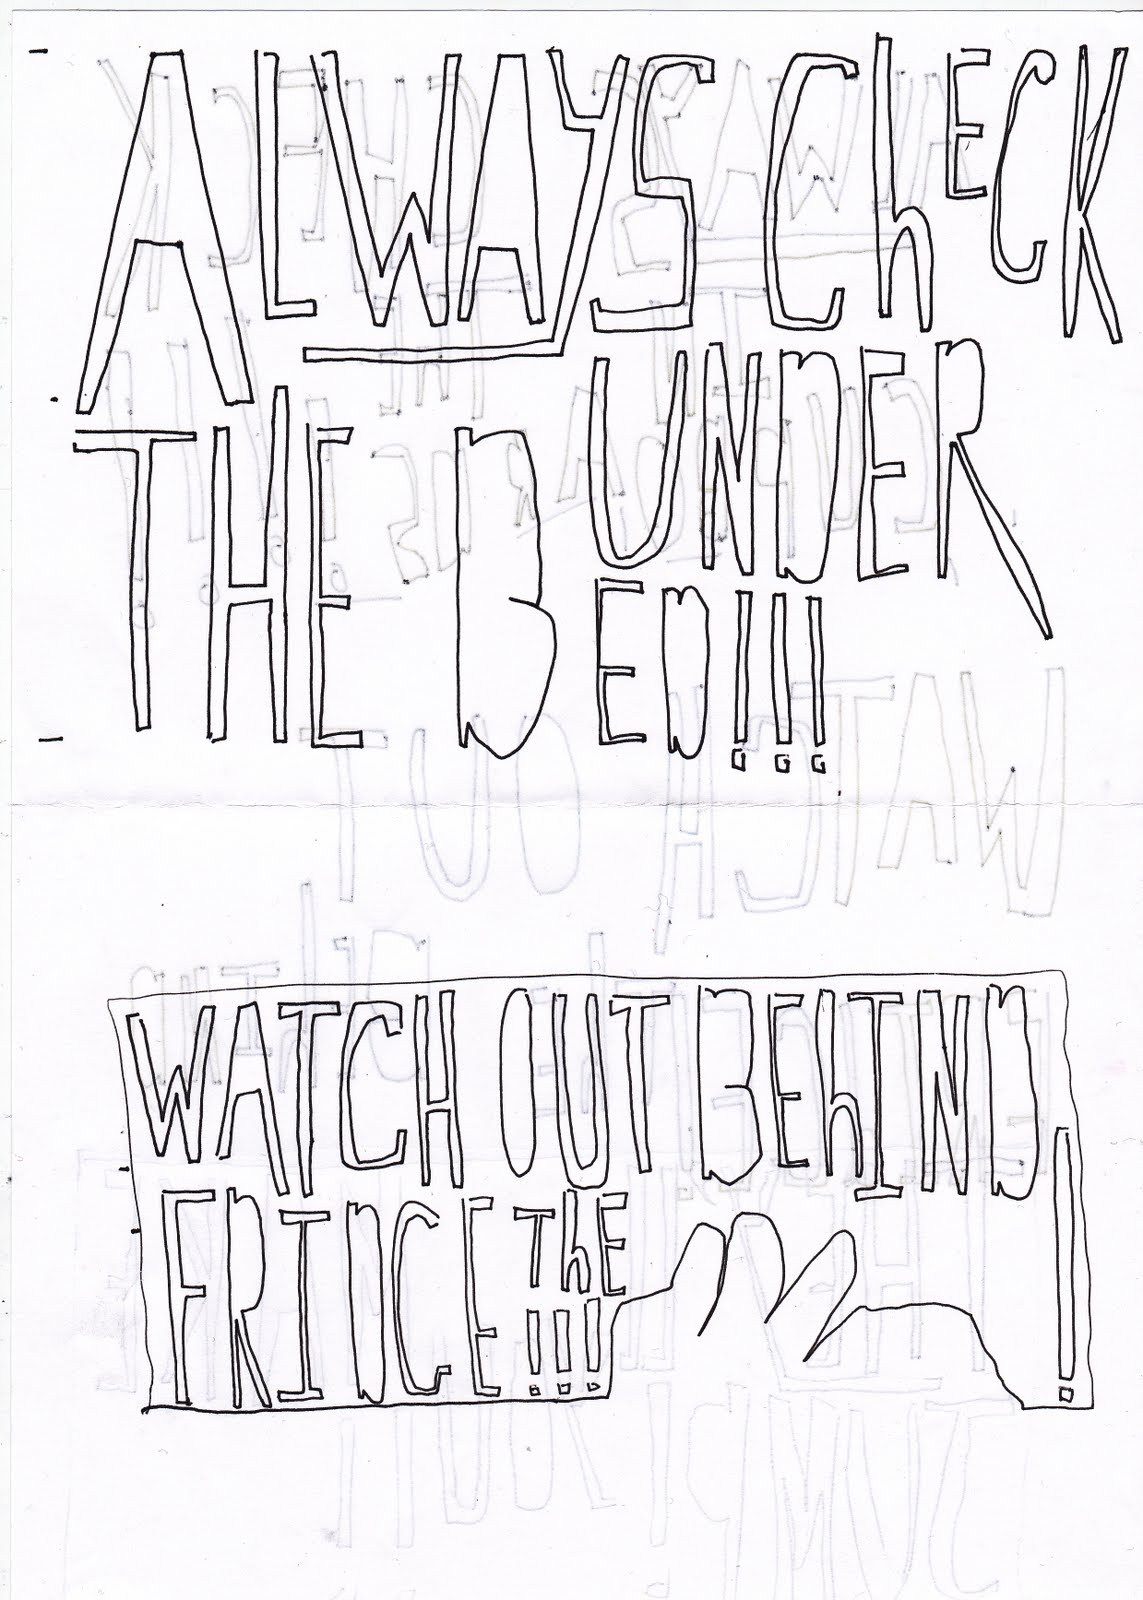 ALWAYS ChECK
UNDER
THE BED!!!
WATCH OUT BEhIND
FRIDGE ThE
!!! !